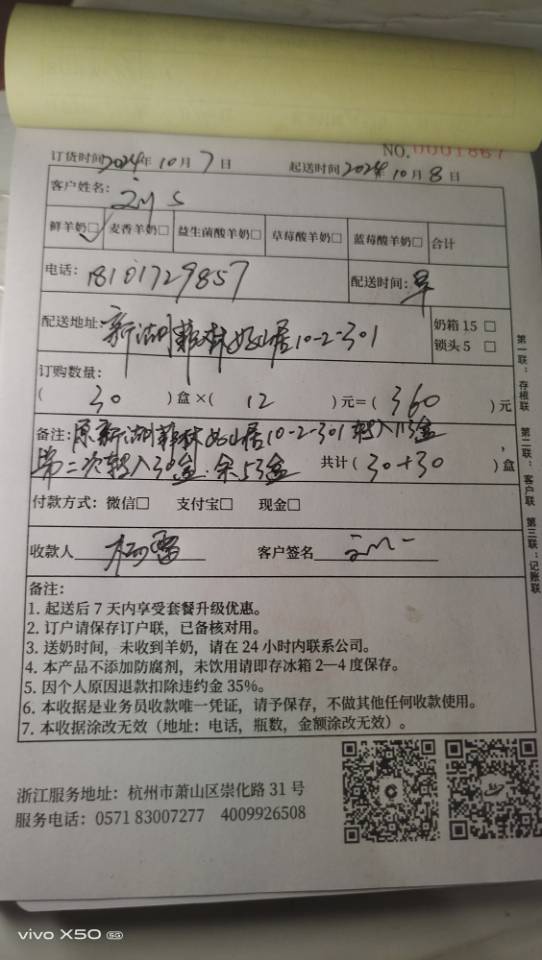 NO.0001867
订货时间2024年10月7日 起送时间2024年10月8日
客户姓名:
鲜羊奶□ 麦香羊奶□ 益生菌酸羊奶□ 草莓酸羊奶□ 蓝莓酸羊奶□ 合计
电话: 18101729857 配送时间: 早
配送地址: 新湖 林 山居10-2-301 奶箱 15 □
锁头 5 □
订购数量:
( 30 )盒×( 12 )元=( 360 )元
备注: 原新湖 林 山居10-2-301转入113盒,
第二次转入30盒.余53盒 共计(30+30)盒
付款方式: 微信□ 支付宝□ 现金□
收款人 杨 客户签名
备注:
1. 起送后 7 天内享受套餐升级优惠。
2. 订户请保存订户联，已备核对用。
3. 送奶时间，未收到羊奶，请在 24 小时内联系公司。
4. 本产品不添加防腐剂，未饮用请即存冰箱 2—4 度保存。
5. 因个人原因退款扣除违约金 35%。
6. 本收据是业务员收款唯一凭证，请予保存，不做其他任何收款使用。
7. 本收据涂改无效（地址：电话，瓶数，金额涂改无效）。
第一联：存根联 第二联：客户联 第三联：记账联
浙江服务地址：杭州市萧山区崇化路 31 号
服务电话：0571 83007277 4009926508
vivo X50 5G